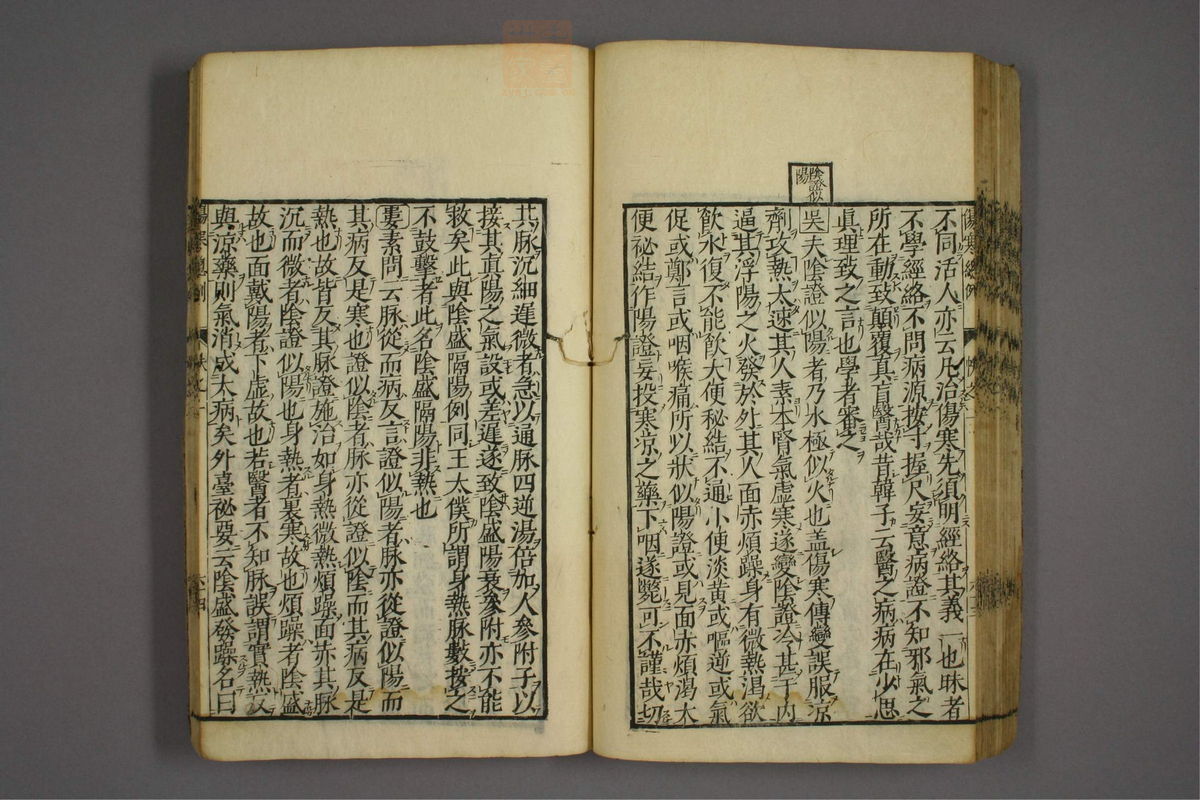 陰證似
陽
不同活人亦云凡治傷寒先須明經絡其義一也昧者
不學經絡不問病源按寸握尺妄意病證不知邪氣之
所在動致顛覆真盲醫哉昔韓子云醫之病病在少思
眞理致之言也學者審之
吳夫陰證似陽者乃水極似火也盖傷寒傳變誤服凉
劑攻熱太速其人素本腎氣虛寒遂變陰證冷甚于內
逼其浮陽之火發於外其人面赤煩躁身有微熱渴欲
飲水復不能飲大便秘結不通小便淡黃或嘔逆或氣
促或鄭言或咽喉痛所以狀似陽證或見面赤煩渴大
便祕結作陽證妄投寒凉之藥下咽遂斃可不謹哉切
其脉沉細遲微者急以通脉四逆湯倍加人參附子以
接其眞陽之氣設或差遲遂致陰盛陽衰參附亦不能
救矣此與陰盛隔陽例同王太僕所謂身熱脉數按之
不鼓擊者此名陰盛隔陽非熱也
婁素問云脉從而病反言證似陽者脉亦從證似陽而
其病反是寒也證似陰者脉亦從證似陰而其病反是
熱也故皆反其脉證施治如身熱微熱煩躁面赤其脉
沉而微者陰證似陽也身熱者裏寒故也煩躁者陰盛
故也面戴陽者下虛故也若醫者不知脉誤謂實熱反
與凉藥則氣消成大病矣外臺祕要云陰盛發躁名曰